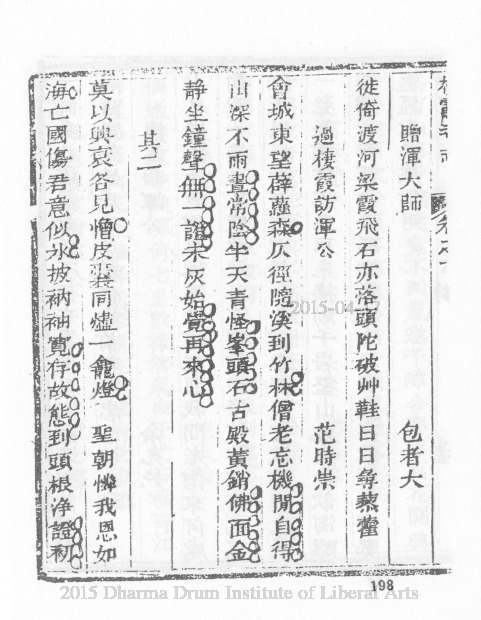 贈渾大師
包者大
徙倚渡河梁霞飛石亦落頭陀破艸鞋日日尋蔾藿
過棲霞訪渾公
范時崇
會城東望薜蘿森仄徑隨溪到竹林僧老忘機閒自得
山深不雨晝常陰半天青怪峯頭石古殿黃銷佛面金
静坐鐘聲無一語未灰始覺再來心
其二
莫以興哀各見憎皮囊同爐一龕燈 聖朝憐我恩如
海亡國傷君意似氷披衲袖寬存故態到頭根淨證初
2015-04-17
198
2015 Dharma Drum Institute of Liberal Arts